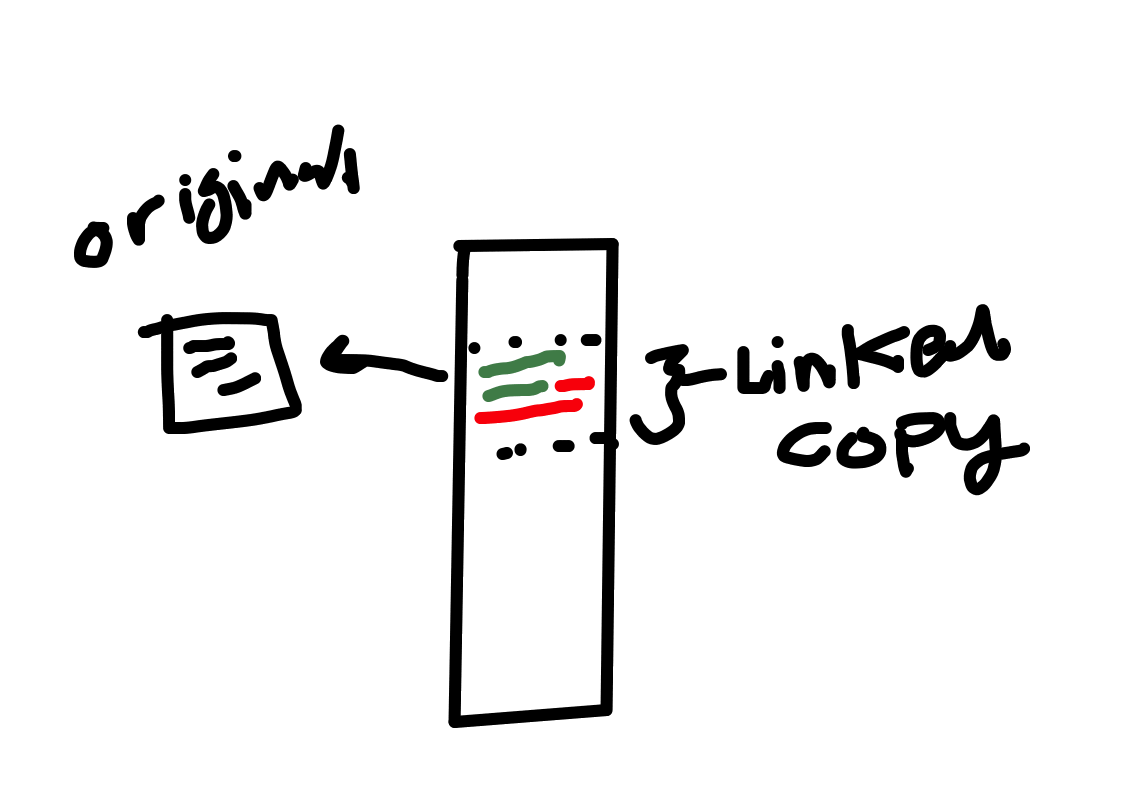 original
Linked
copy